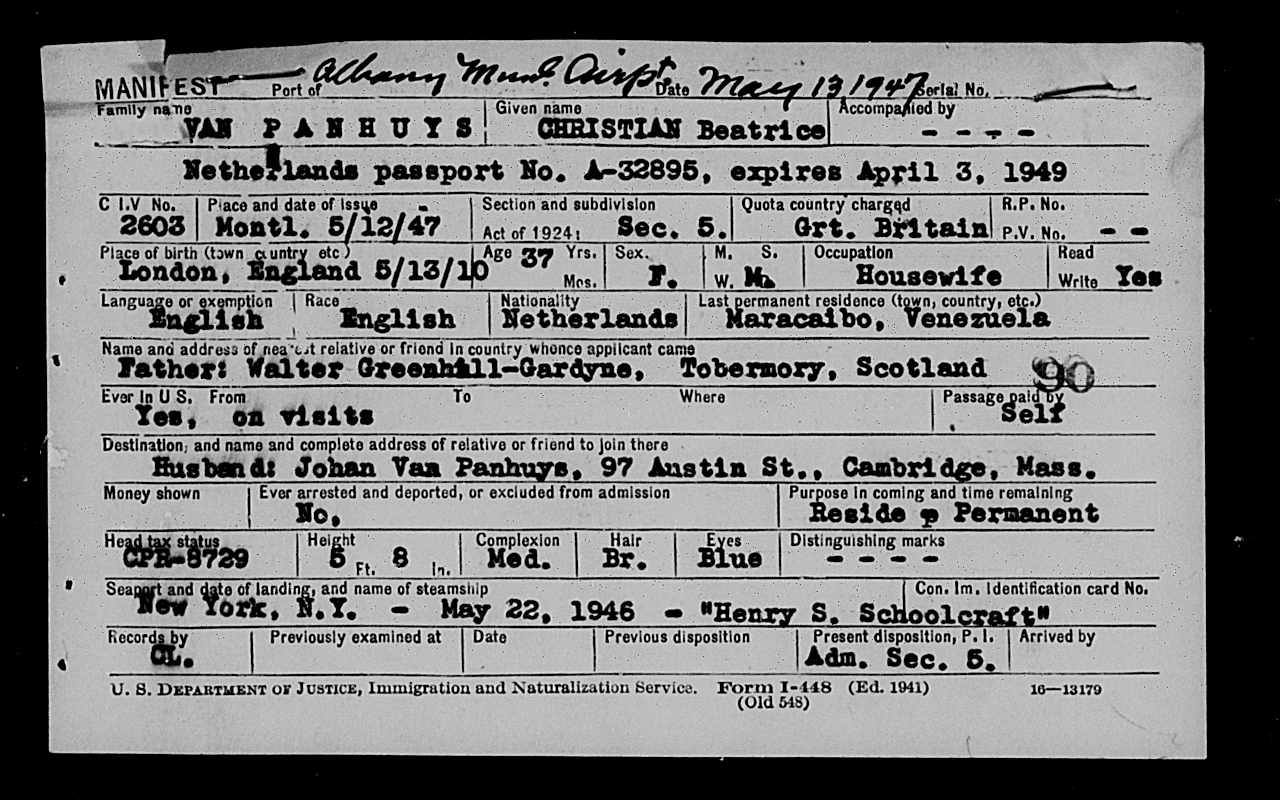 MANIFEST Port of Albany Mun. Airpt. Date May 13, 1947 Serial No.
Family name Given name Accompanied by
VAN PANHUYS CHRISTIAN Beatrice - - - -
Netherlands passport No. A-32895, expires April 3, 1949
C I.V No. Place and date of issue Section and subdivision Quota country charged R.P. No.
2603 Montl. 5/12/47 Act of 1924: Sec. 5. Grt. Britain P.V. No. - -
Place of birth (town country etc) Age 37 Yrs. Sex. M. S. Occupation Read
London, England 5/13/10 Mos. F. W. M. Housewife Write Yes
Language or exemption Race Nationality Last permanent residence (town, country, etc.)
English English Netherlands Maracaibo, Venezuela
Name and address of nearest relative or friend in country whence applicant came
Father: Walter Greenhill-Gardyne, Tobermory, Scotland 90
Ever in U S. From To Where Passage paid by
Yes, on visits Self
Destination, and name and complete address of relative or friend to join there
Husband: Johan Van Panhuys, 97 Austin St., Cambridge, Mass.
Money shown Ever arrested and deported, or excluded from admission Purpose in coming and time remaining
No. Reside p Permanent
Head tax status Height Complexion Hair Eyes Distinguishing marks
CPR-8729 5 Ft. 8 In. Med. Br. Blue - - - -
Seaport and date of landing, and name of steamship Con. Im. Identification card No.
New York, N.Y. - May 22, 1946 - "Henry S. Schoolcraft"
Records by Previously examined at Date Previous disposition Present disposition, P. I. Arrived by
CL. Adm. Sec. 5.
U. S. DEPARTMENT OF JUSTICE, Immigration and Naturalization Service. Form I-448 (Ed. 1941) 16—13179
(Old 548)